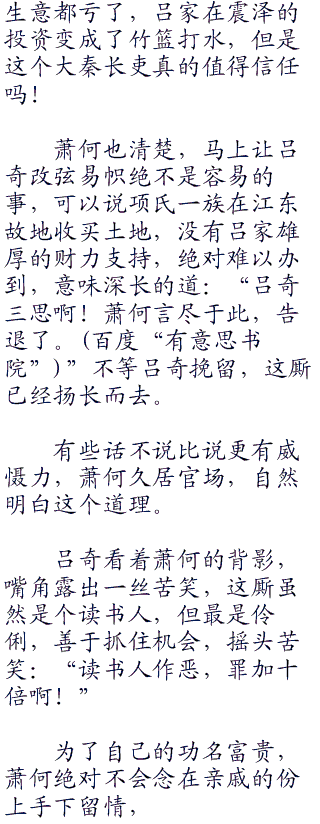 生意都亏了，吕家在震泽的
投资变成了竹篮打水，但是
这个大秦长吏真的值得信任
吗！
萧何也清楚，马上让吕
奇改弦易帜绝不是容易的
事，可以说项氏一族在江东
故地收买土地，没有吕家雄
厚的财力支持，绝对难以办
到，意味深长的道：“吕奇
三思啊！萧何言尽于此，告
退了。(百度“有意思书
院”)”不等吕奇挽留，这厮
已经扬长而去。
有些话不说比说更有威
慑力，萧何久居官场，自然
明白这个道理。
吕奇看着萧何的背影，
嘴角露出一丝苦笑，这厮虽
然是个读书人，但最是伶
俐，善于抓住机会，摇头苦
笑：“读书人作恶，罪加十
倍啊！”
为了自己的功名富贵，
萧何绝对不会念在亲戚的份
上手下留情，